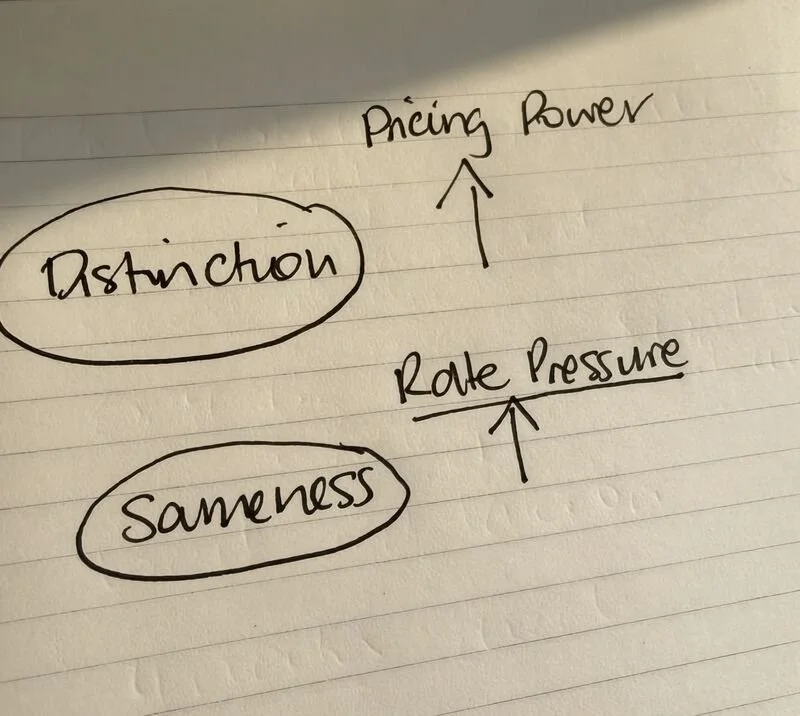 Pricing Power
Distinction
Rate Pressure
Sameness